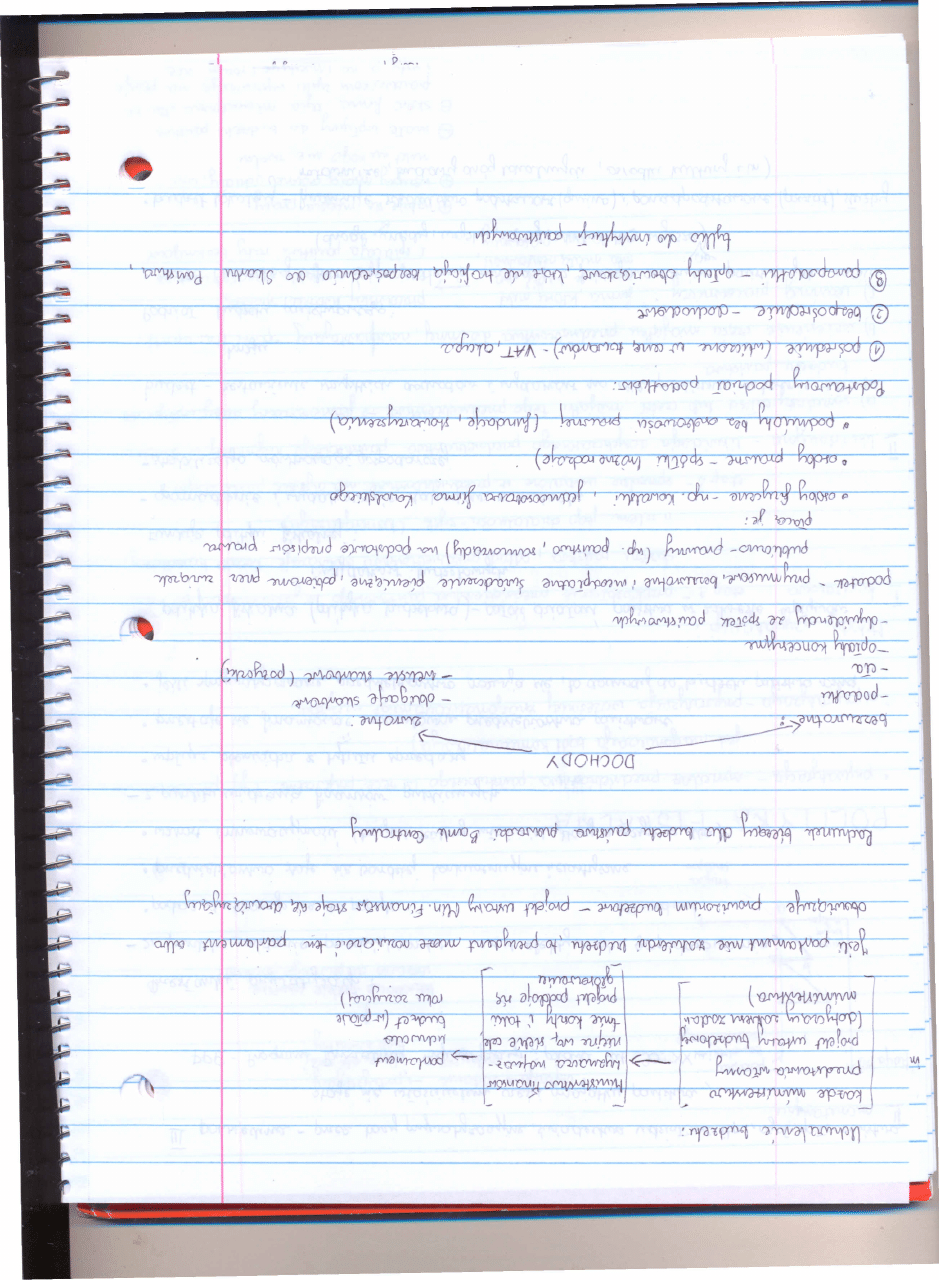 Uchwalenie budżetu:
każde ministerstwo
przedstawia własny
projekt ustawy budżetowej
(dotyczący zadań
ministerstwa)
Ministerstwo Finansów
wyznacza najważ-
niejsze wg siebie cele
tnie koszty i taki
projekt poddaje się
głosowaniu
parlament
uchwala
budżet (w połowie
roku
Jeśli parlament nie zatwierdzi budżetu, to prezydent może rozwiązać ten parlament albo
obowiązuje prowizorium budżetowe - projekt ustawy Min. Finansów staje się obowiązujący
Rachunek bieżący dla budżetu państwa prowadzi Bank Centralny
DOCHODY
bezzwrotne:
-podatki
-cła
-opłaty koncesyjne
-dywidendy ze spółek państwowych
zwrotne:
- obligacje skarbowe
- weksle skarbowe (pożyczki)
podatek - przymusowe, bezzwrotne i nieodpłatne świadczenie pieniężne, pobierane przez związek
publiczno-prawny (np. państwo, samorządy) na podstawie przepisów prawa
płacą je:
• osoby fizyczne - np. Kowalski, jednoosobowa firma Kowalskiego
• osoby prawne - spółki (różne rodzaje)
• podmioty bez osobowości prawnej (fundacje, stowarzyszenia)
Podstawowy podział podatków:
① pośrednie (wliczone w cenę towarów) - VAT, akcyza
② bezpośrednie - dochodowe
③ parapodatki - opłaty obowiązkowe, które nie trafiają bezpośrednio do Skarbu Państwa,
tylko do instytucji państwowych